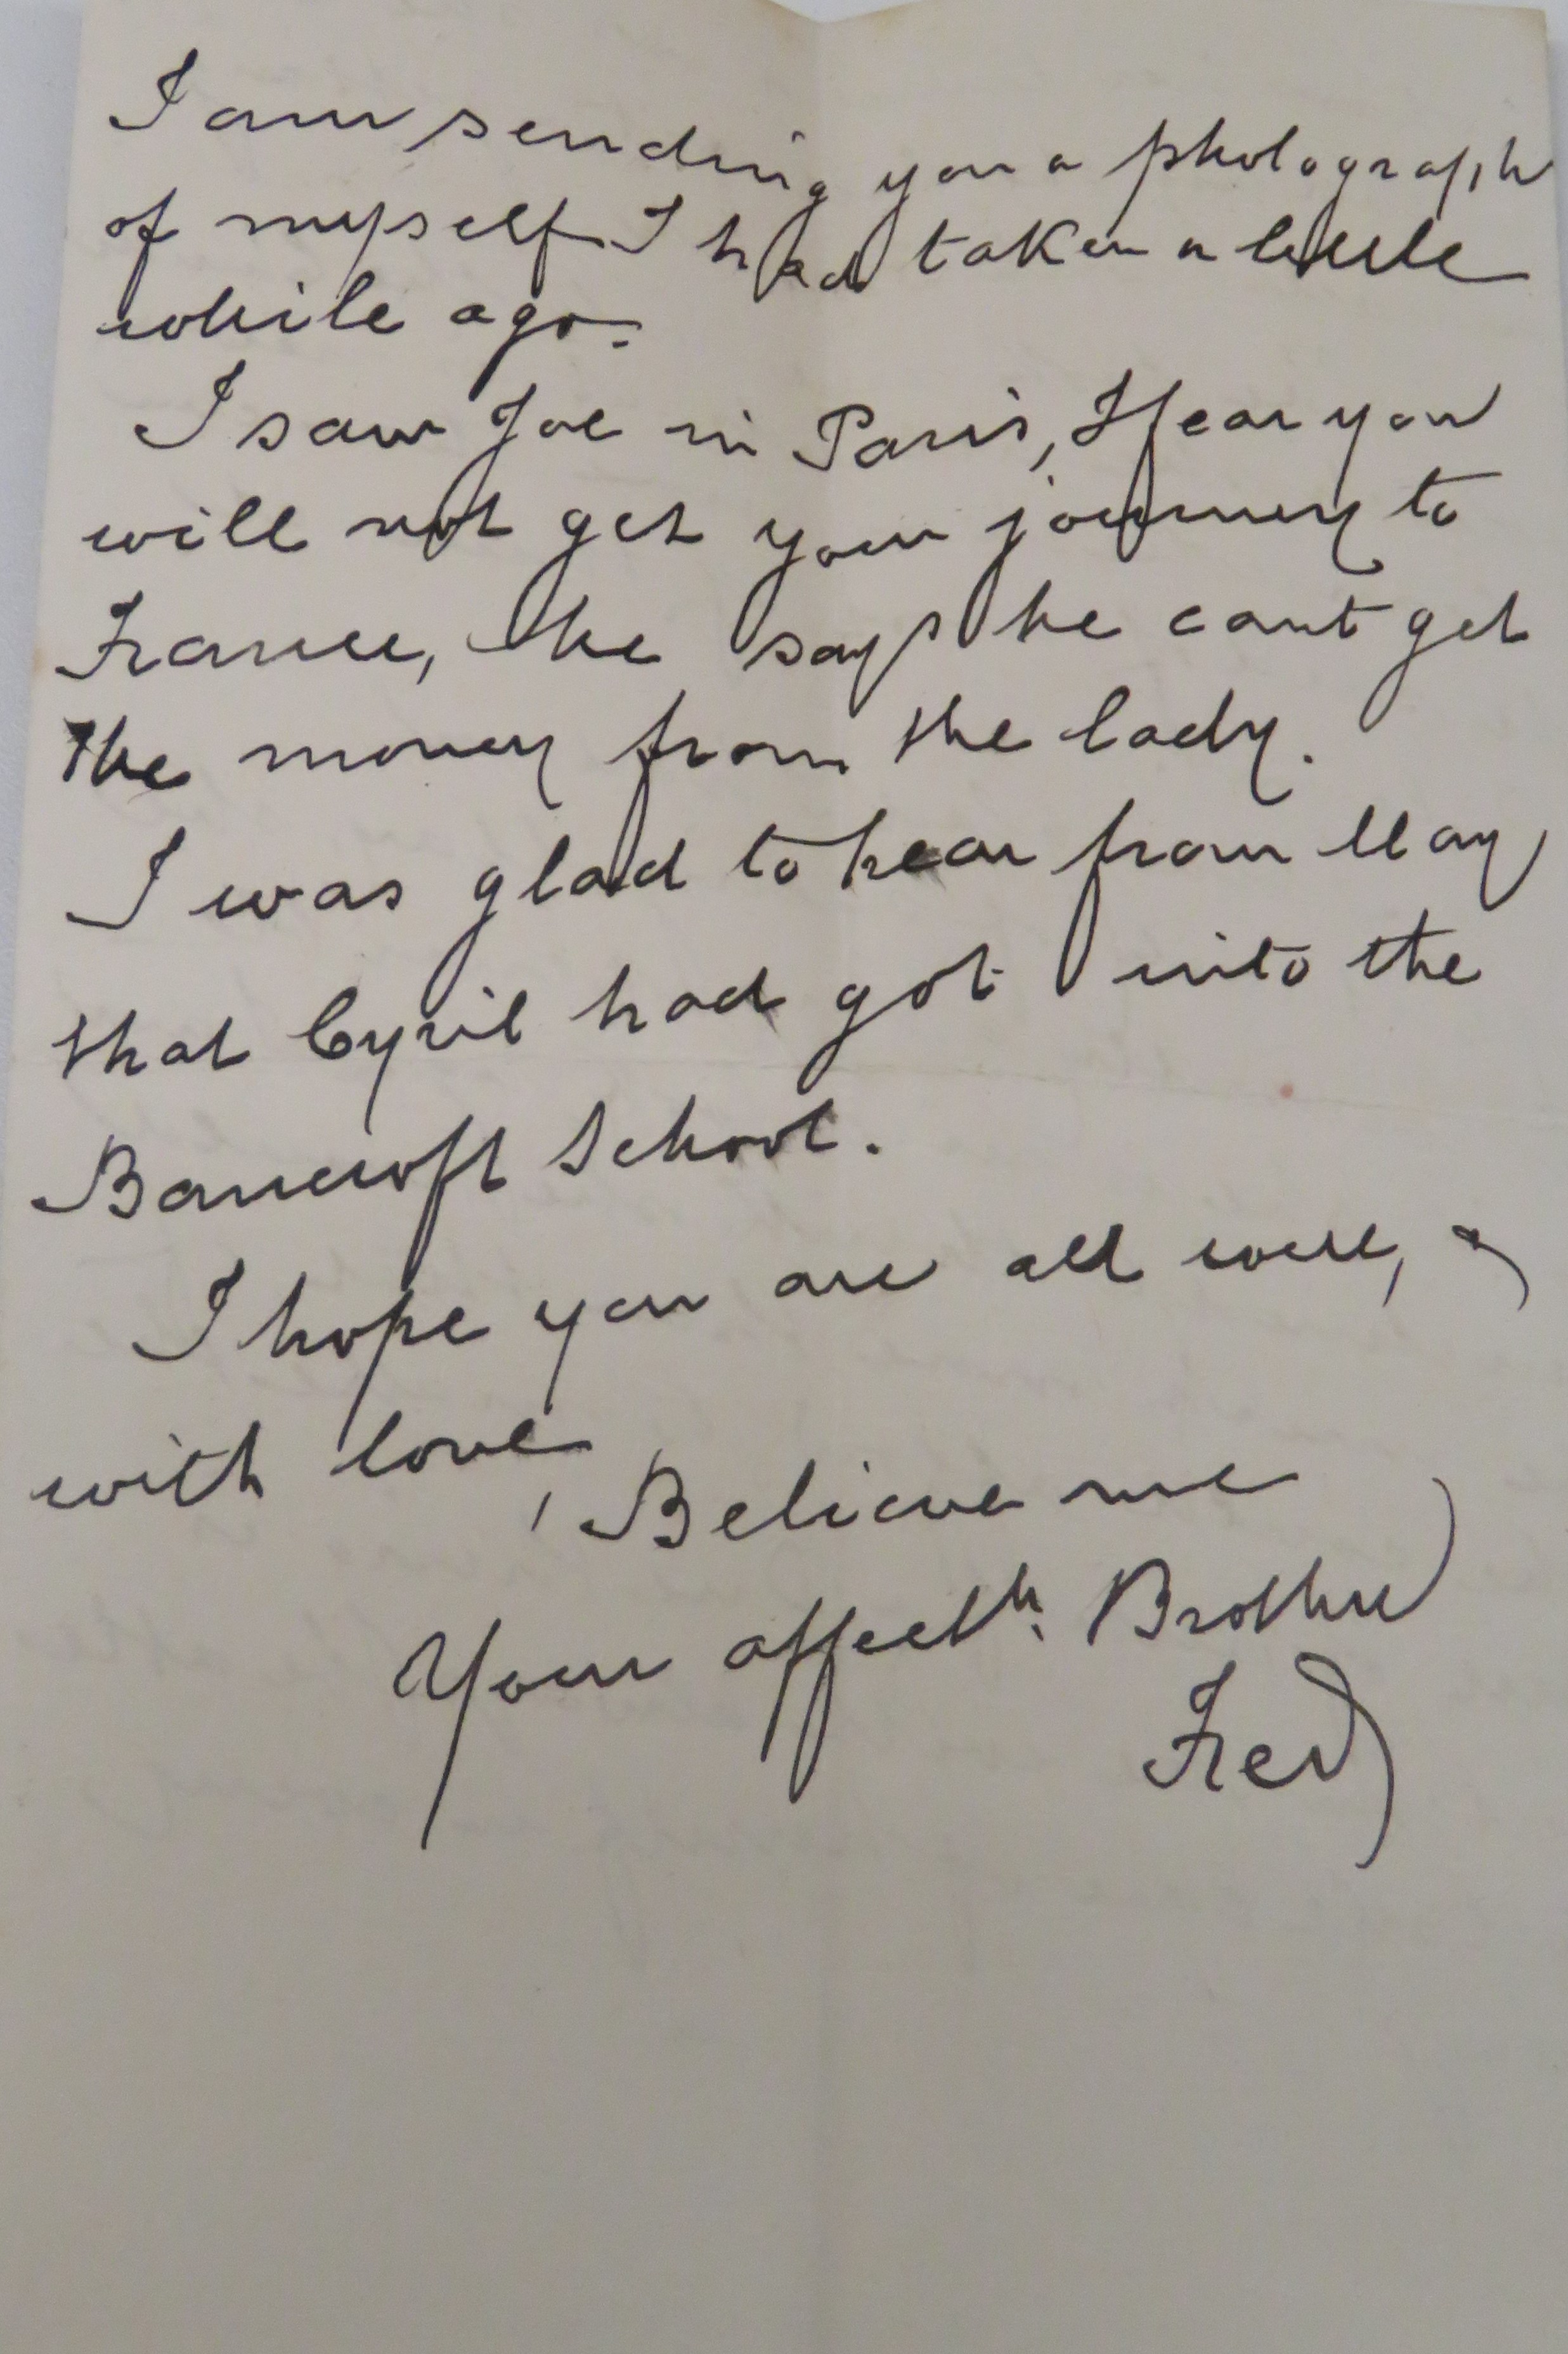 I am sending you a photograph
of myself I had taken a little
while ago.
I saw Joe in Paris, I fear you
will not get your journey to
France, he says he cant get
the money from the lady.
I was glad to hear from May
that Cyril had got into the
Bancroft School.
I hope you are all well, &
with love, Believe me
Your affectte. Brother
Fred